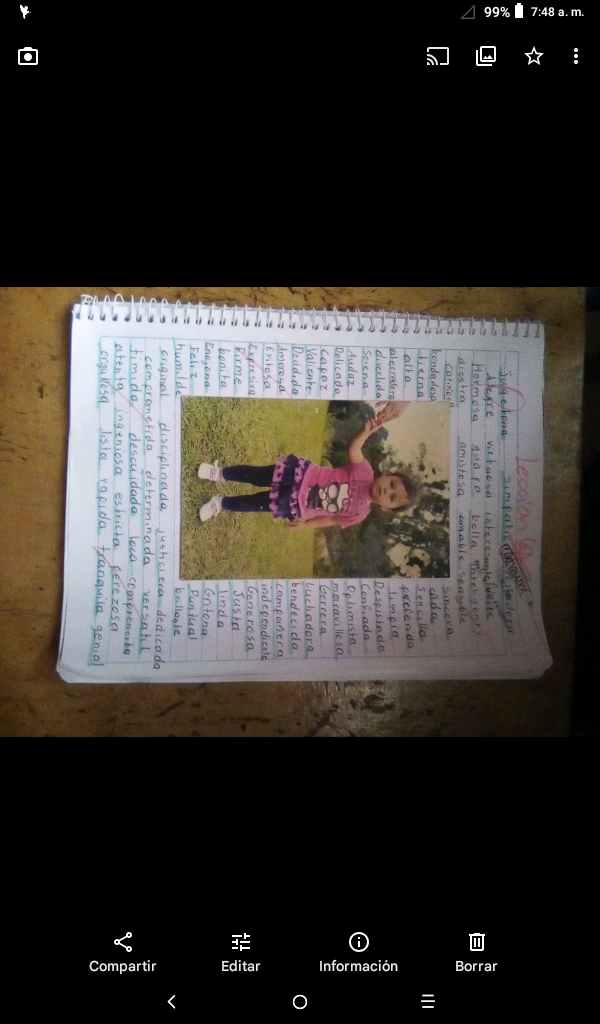 99% 7:48 a. m.
Lección
Juguetona simpatica
Alegre virtuosa
Hermosa guapa bella inteligente
diestra amistosa amable
cariñosa sincera
bondadosa educada
tierna Sencilla
alta preferida
aterradora limpia
divertida Despistada
Serena Confiada
Audaz Optimista
Delicada maravillosa
Capaz Gerrera
Valiente Luchadora
Decidida bendecida
Amorosa compañera
Exitosa independiente
Expresiva Generosa
firme Justa
bonita linda
Enojona Gritona
feliz Puntual
humilde brillante
original disciplinada justiciera dedicada
comprometida determinada versatil
timida descuidada loca
atenta ingeniosa estricta perezosa
orgullosa lista rapida tranquila genial
Compartir Editar Información Borrar